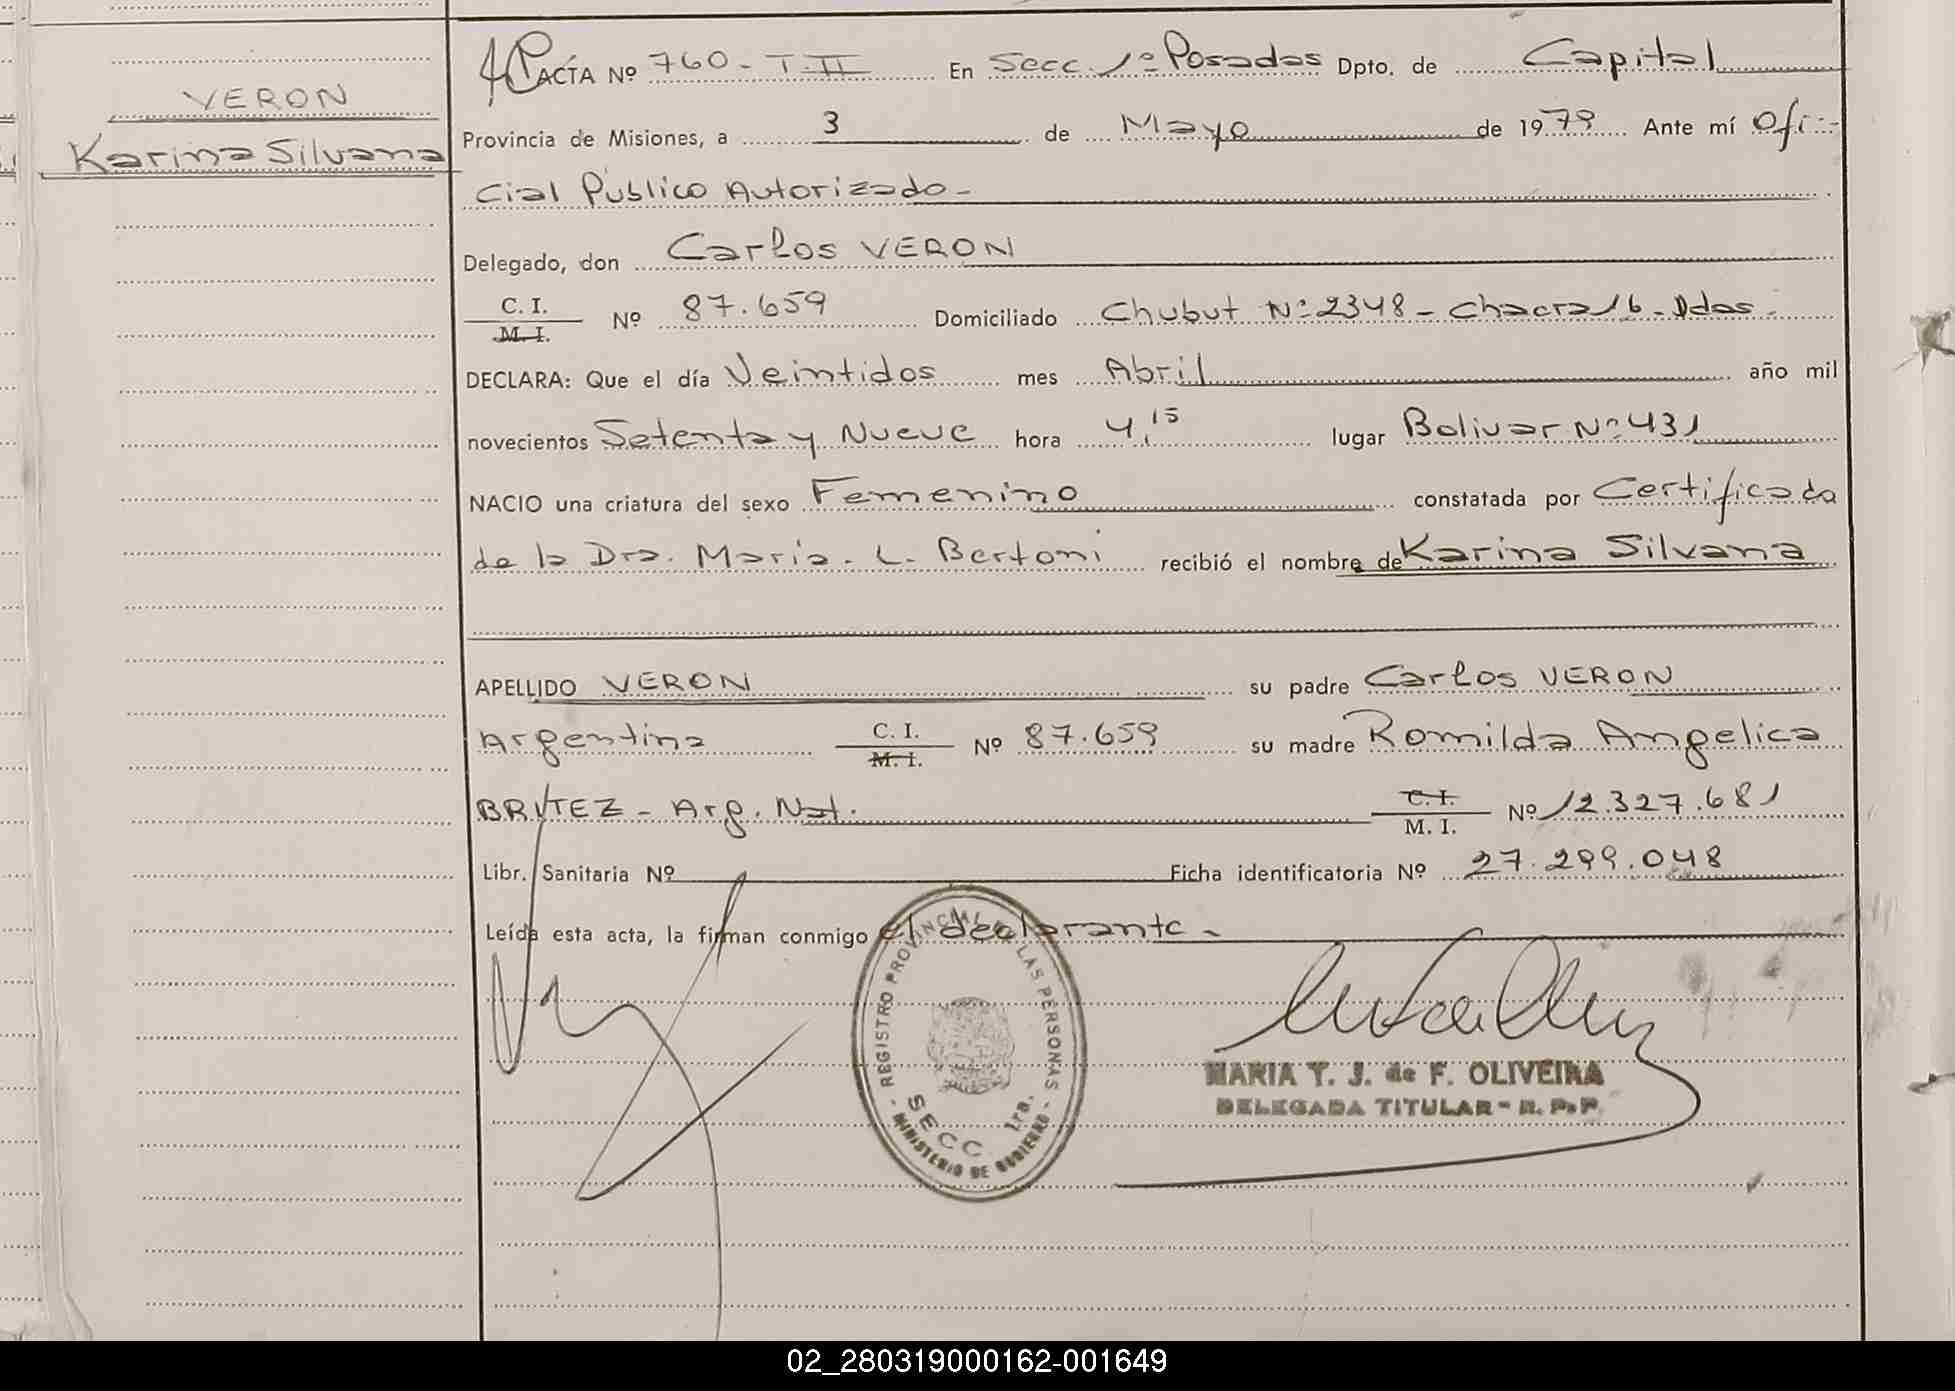 VERON
Karina Silvana
ACTA Nº 760 - T. II En Secc. 1º Posadas Dpto. de Capital
Provincia de Misiones, a 3 de Mayo de 1979 Ante mí Ofi-
cial Público Autorizado -
Delegado, don Carlos VERON
C. I.
M. I.
Nº 87.659 Domiciliado Chubut Nº 2348 - Chacra 16 - Pdas.
DECLARA: Que el día Veintidos mes Abril año mil
novecientos Setenta y Nueve hora 4,15 lugar Bolivar Nº 431
NACIO una criatura del sexo Femenino constatada por Certificado
de la Dra. Maria. L. Bertoni recibió el nombre de Karina Silvana
APELLIDO VERON su padre Carlos VERON
Argentina C. I. M. I. Nº 87.659 su madre Romilda Angelica
BRITEZ - Arg. Nat. C. I. M. I. Nº 12.327.681
Libr. Sanitaria Nº Ficha identificatoria Nº 27.299.048
Leída esta acta, la firman conmigo el declarante -
REGISTRO PROVINCIAL DE LAS PERSONAS
SECC 1ra.
MINISTERIO DE GOBIERNO
MARIA T. J. de F. OLIVEIRA
DELEGADA TITULAR - R. P. P.
02_280319000162-001649